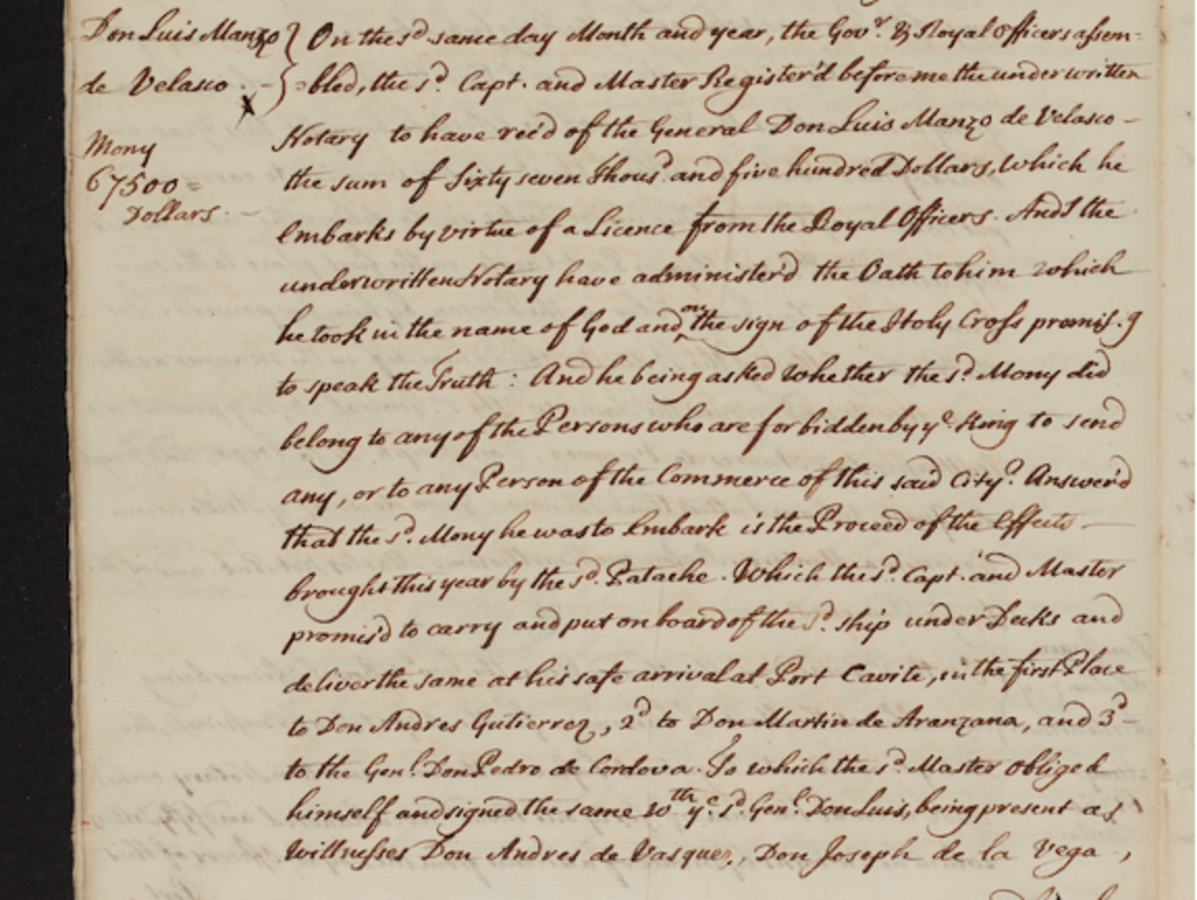 Don Luis Manzo
de Velasco. -
Mony
67500=
Dollars. -
On the sd same day Month and year, the Govr. & Royal Officers assem=
=bled, the sd. Capt. and Master Register'd before me the underwritten
Notary to have rec'd of the General Don Luis Manzo de Velasco -
the sum of Sixty seven Thousd. and five hundred Dollars, Which he
Embarks by virtue of a Licence from the Royal Officers. And I the
underwritten Notary have administer'd the Oath to him which
he took in the name of God and on the sign of the Holy Cross promis.g
to speak the Truth: And he being asked Whether the sd. Mony did
belong to any of the Persons who are forbidden by ye. King to send
any, or to any Person of the Commerce of this said City? Answer'd
that the sd. Mony he was to Embark is the Proceed of the Effects -
brought this year by the sd. Patache. Which the sd. Capt. and Master
promis'd to carry and put on board of the sd. ship under Decks and
deliver the same at his safe arrival at Port Cavite, in the first Place
to Don Andres Gutierrez, 2d to Don Martin de Aranzana, and 3d -
to the Genl. Don Pedro de Cordova. To which the sd. Master obliged
himself and signed the same Wth ye. sd. Genl. Don Luis, being present as
Wittnesses Don Andres de Vasquez, Don Joseph de la Vega,